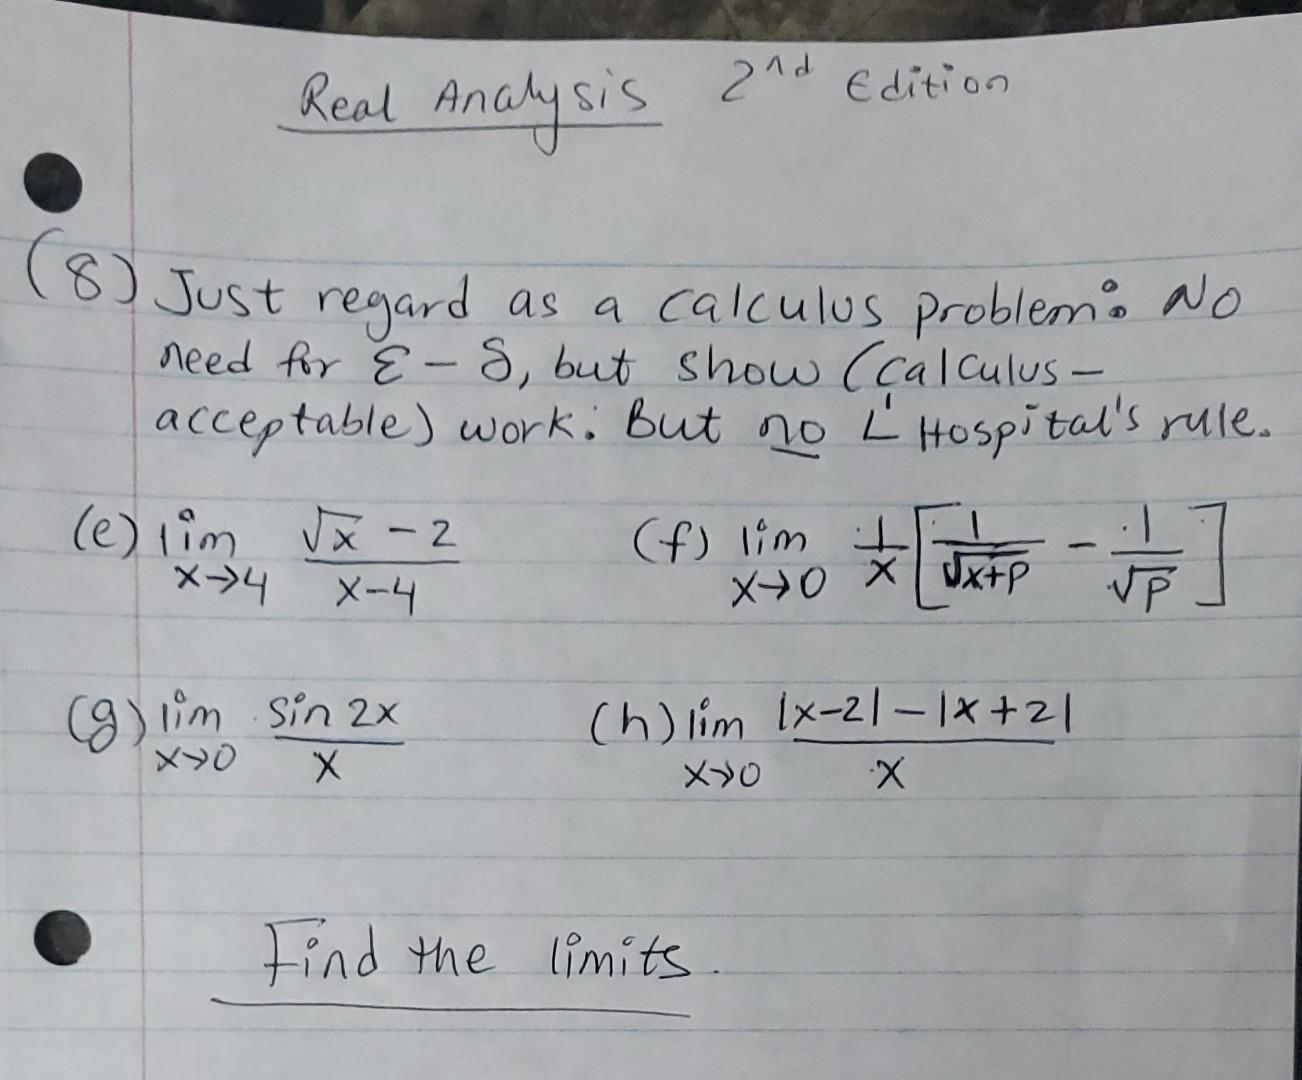 Real Analysis 2nd Edition
(8) Just regard as a calculus problem: No
need for ε-δ, but show (calculus-
acceptable) work. But no L'Hospital's rule.
(e) lim x→4 (√x - 2)/(x-4) (f) lim x→0 1/x [1/√(x+p) - 1/√p]
(g) lim x→0 sin 2x/x (h) lim x→0 (|x-2| - |x+2|)/x
Find the limits.